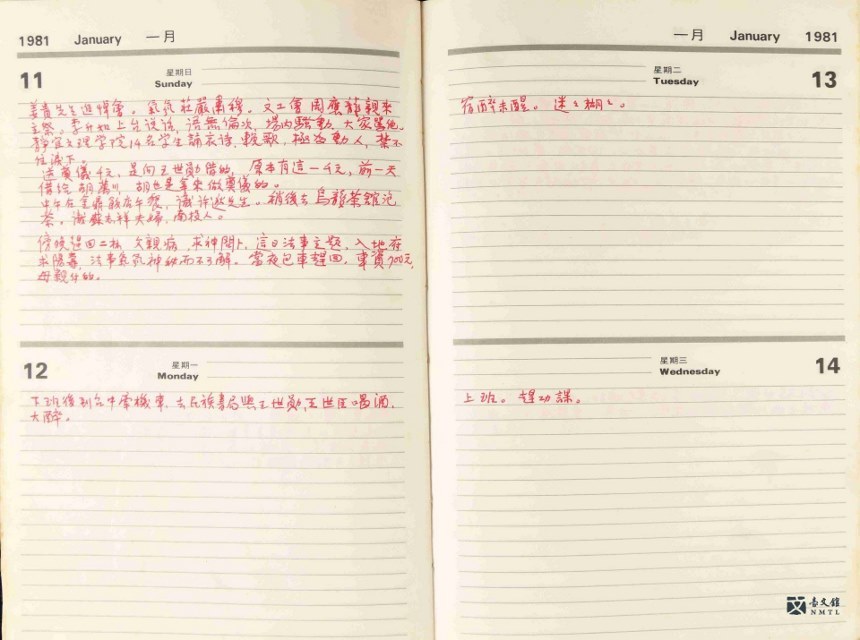 1981 January 一月
11
星期日
Sunday
姜貴先生追悼會。氣氛莊嚴肅穆。文工會周應龍親來
主祭。李升如上台說話，語無倫次，場內騷動，大家罵他。
靜宜文理學院14名學生誦衣詩，輓歌，極為動人，禁不
住淚下。
送奠儀千元，是向王世勛借的，原本有這一千元，前一天
借給胡，胡也是拿來做奠儀的。
中午在飯店午餐，識許逖先生。稍後去烏龍茶館泡
茶，謝蘇吉祥夫婦，南投人。
傍晚趕回二林，父親病，求神問卜，這日法事主題，入地府
求陽壽，法事氣氛神秘而不了解。當夜包車趕回，車資700元，
母親付的。
12
星期一
Monday
下班後到台中牽機車，去民族書局與王世勛，王世匡喝酒，
大醉。
一月 January 1981
星期二
Tuesday
13
宿醉未醒。迷迷糊糊。
星期三
Wednesday
14
上班。趕功課。
臺文館
NMTL